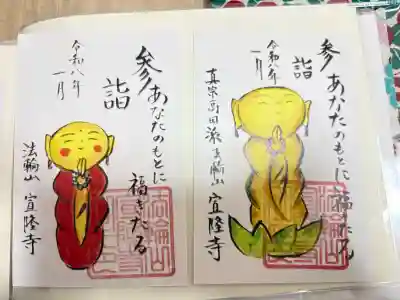 参詣
あなたのもとに
福きたる
令和八年
一月
法輪山 宜隆寺
参詣
あなたのもとに
福きたる
令和八年
一月
真宗高田派 法輪山 宜隆寺